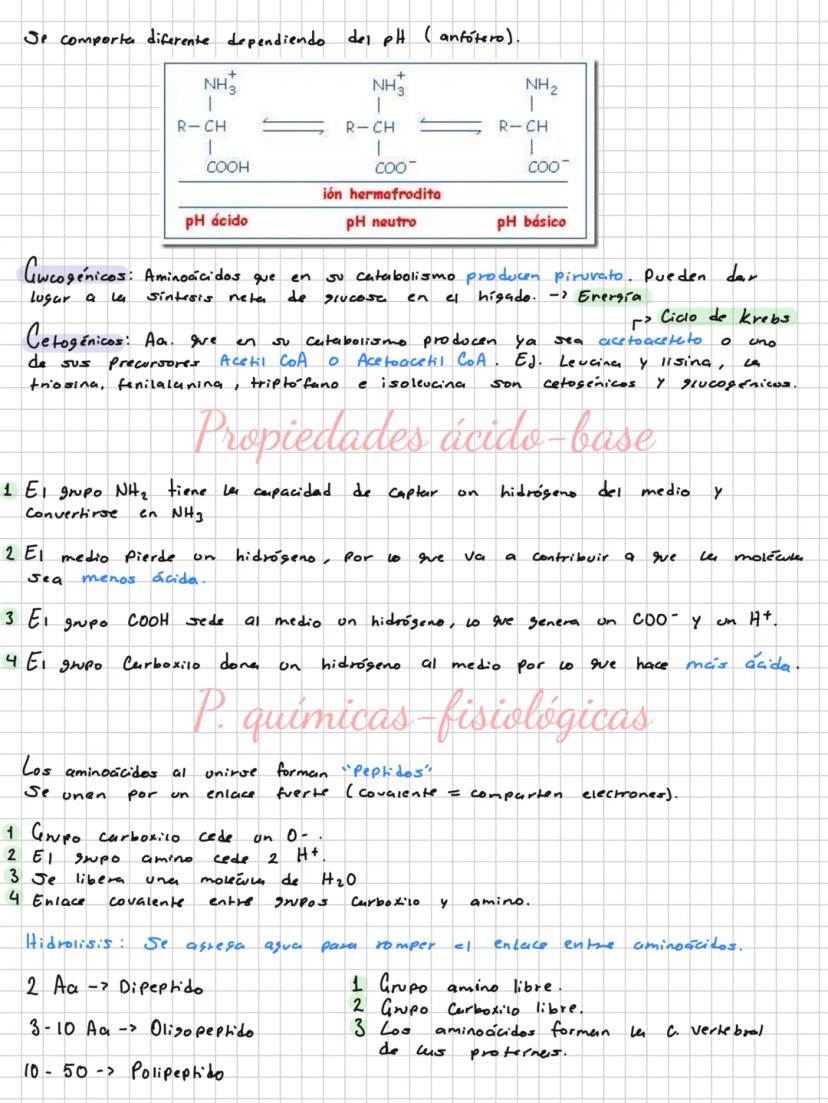 Se comporta diferente dependiendo del pH (anfótero).
NH3+ NH3+ NH2
R-CH R-CH R-CH
COOH COO- COO-
ión hermafrodita
pH ácido pH neutro pH básico
Glucogénicos: Aminoácidos que en su catabolismo producen piruvato. Pueden dar
lugar a la síntesis neta de glucosa en el hígado. -> Energía
-> Ciclo de Krebs
Cetogénicos: Aa. que en su catabolismo producen ya sea acetoacetato o uno
de sus precursores Acetil CoA o Acetoacetil CoA. Ej. Leucina y lisina, la
triosina, fenilalanina, triptófano e isoleucina son cetogénicos y glucogénicos.
Propiedades ácido-base
1 El grupo NH2 tiene la capacidad de captar un hidrógeno del medio y
convertirse en NH3
2 El medio pierde un hidrógeno, por lo que va a contribuir a que la molécula
sea menos ácida.
3 El grupo COOH sede al medio un hidrógeno, lo que genera un COO- y un H+.
4 El grupo Carboxilo dona un hidrógeno al medio por lo que hace más ácida.
P. químicas-fisiológicas
Los aminoácidos al unirse forman "Peptidos"
Se unen por un enlace fuerte (covalente = comparten electrones).
1 Grupo carboxilo cede un O-.
2 El grupo amino cede 2 H+.
3 Se libera una molécula de H2O
4 Enlace covalente entre grupos carboxilo y amino.
Hidrolisis: Se agrega agua para romper el enlace entre aminoácidos.
2 Aa -> Dipeptido
3-10 Aa -> Oligopeptido
10 - 50 -> Polipeptido
1 Grupo amino libre.
2 Grupo Carboxilo libre.
3 Los aminoácidos forman la c. vertebral
de las proteínas.